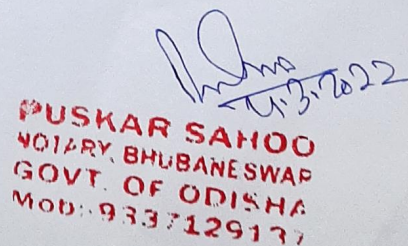 4.3.2022
PUSKAR SAHOO
NOTARY, BHUBANESWAR
GOVT. OF ODISHA
MOD:-9337129137